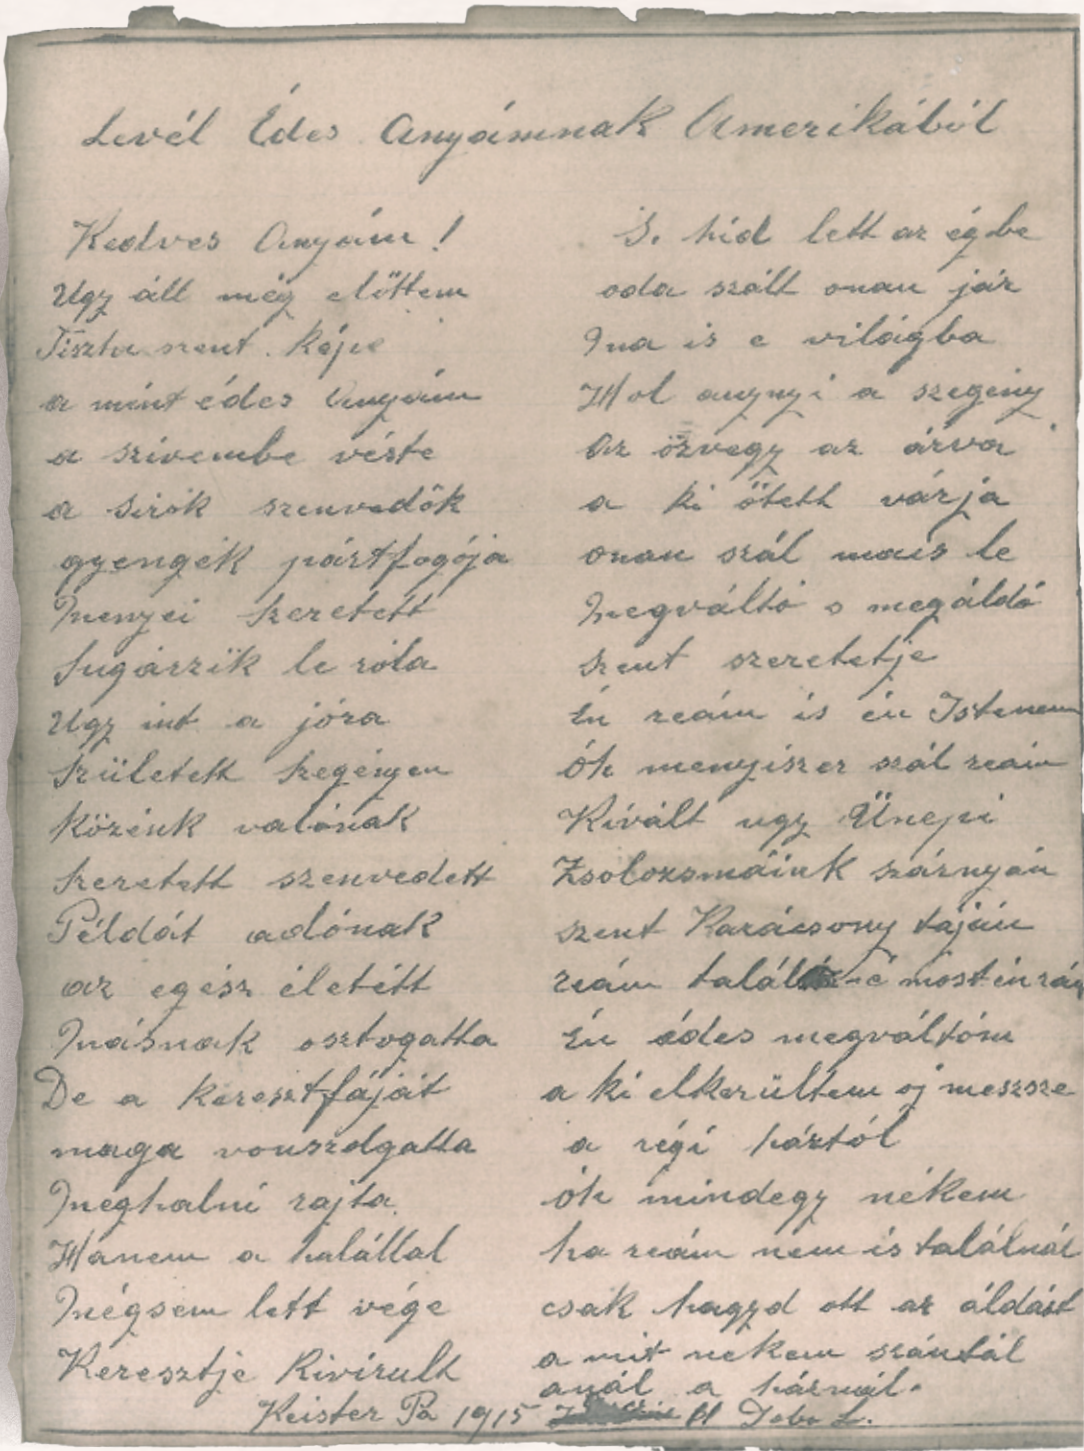 Levél Édes Anyámnak Amerikából
Kedves Anyám!
Ugy áll még előttem
Tiszta szent Képe
a mint édes Anyám
a szívembe véste
a Sirok szenvedők
gyengék pártfogója
Menyei Szeretett
Sugárzik le róla
Ugy int a jóra
Született Szegényen
Közénk valónak
Szeretett szenvedett
Példát adónak
az egész életétt
Másnak osztogatta
De a Keresztfáját
maga vonszolgatta
Meghalni rajta
Hanem a halállal
Mégsem lett vége
Keresztje Kivirult
S. híd lett az égbe
oda szált onan jár
Ma is e világba
Hol anynyi a szegény
az özvegy az árva
a ki őtett várja
onan szál mais le
Megváltó s megáldó
Szent szeretetje
Én reám is én Istenem
Óh menyiszer szál reám
Kivált ugy Ünepi
Zsolozsmáink szárnyán
szent Karácsony táján
reám talál -é most én rám
Én édes megváltóm
a ki elkerültem oj meszsze
a régi háztól
óh mindegy nékem
ha reám nem is találnál
csak hagyd ott az áldást
a mit nekem szántál
anál a háznál.
Keister Pa 1915 Dobo L.